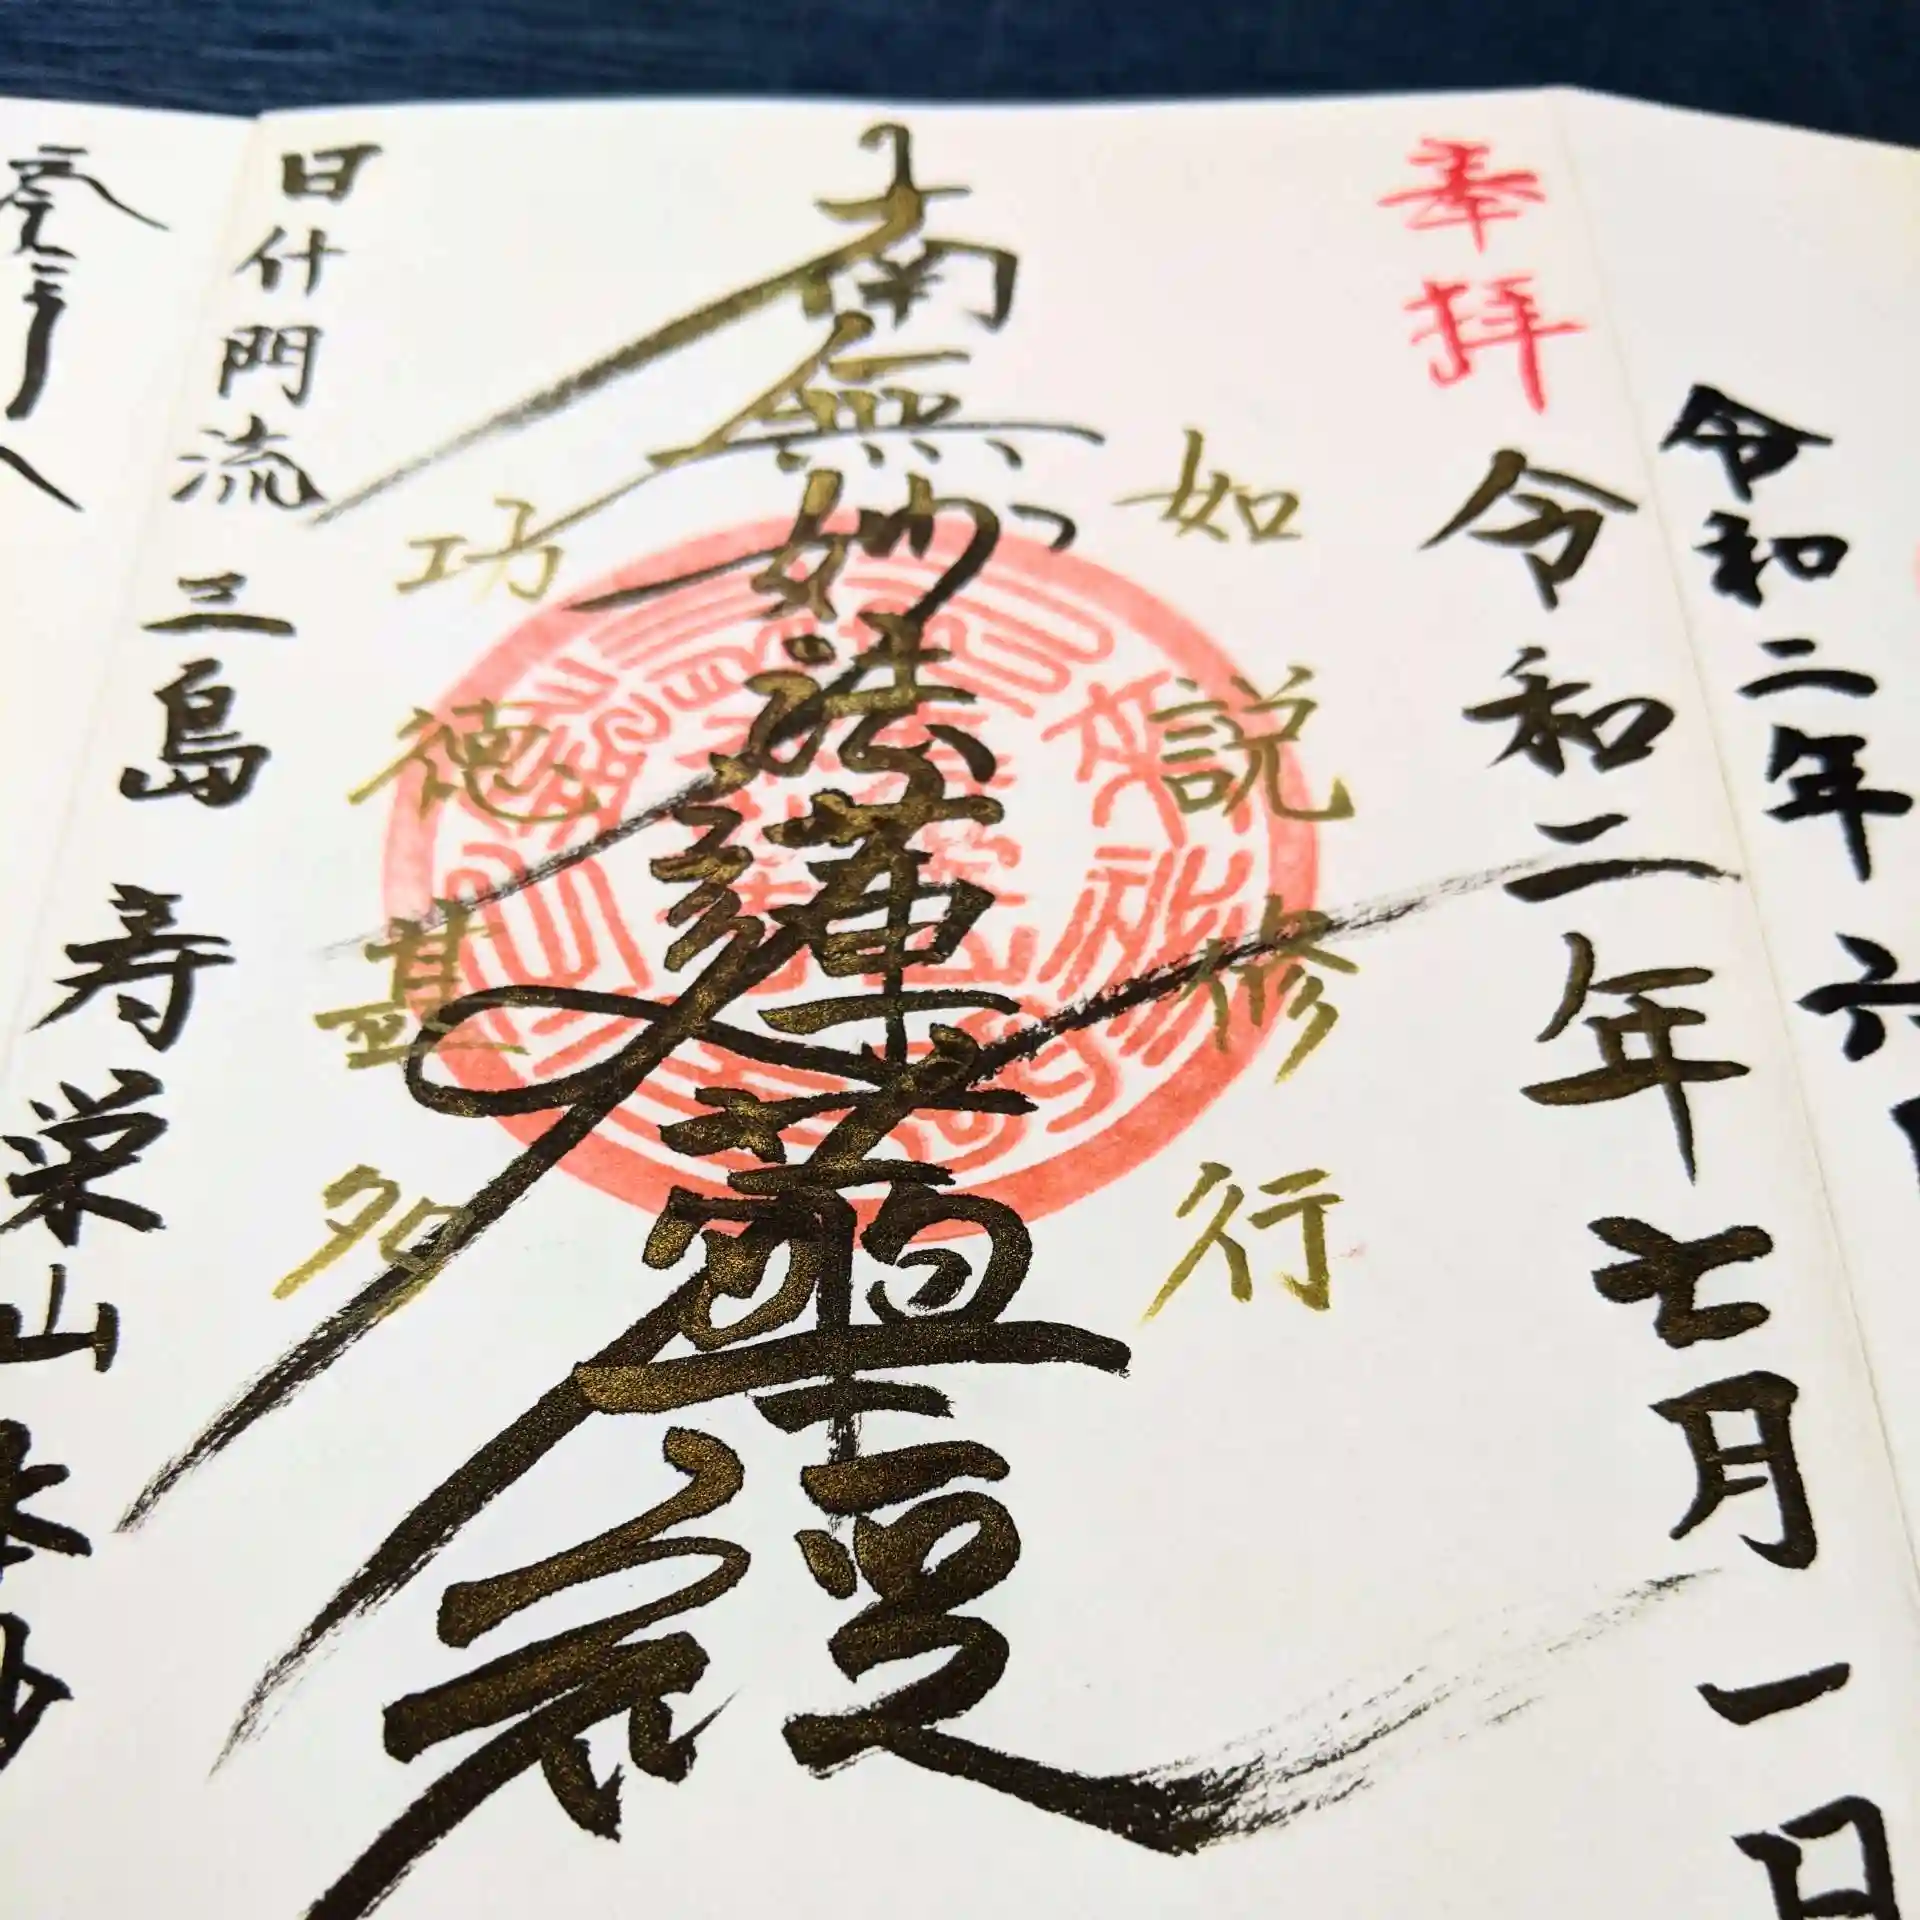 令和二年六
奉拝
令和二年七月一日
如説修行
南無妙法蓮華経
功徳甚多
日什門流
三島 寿栄山 本妙